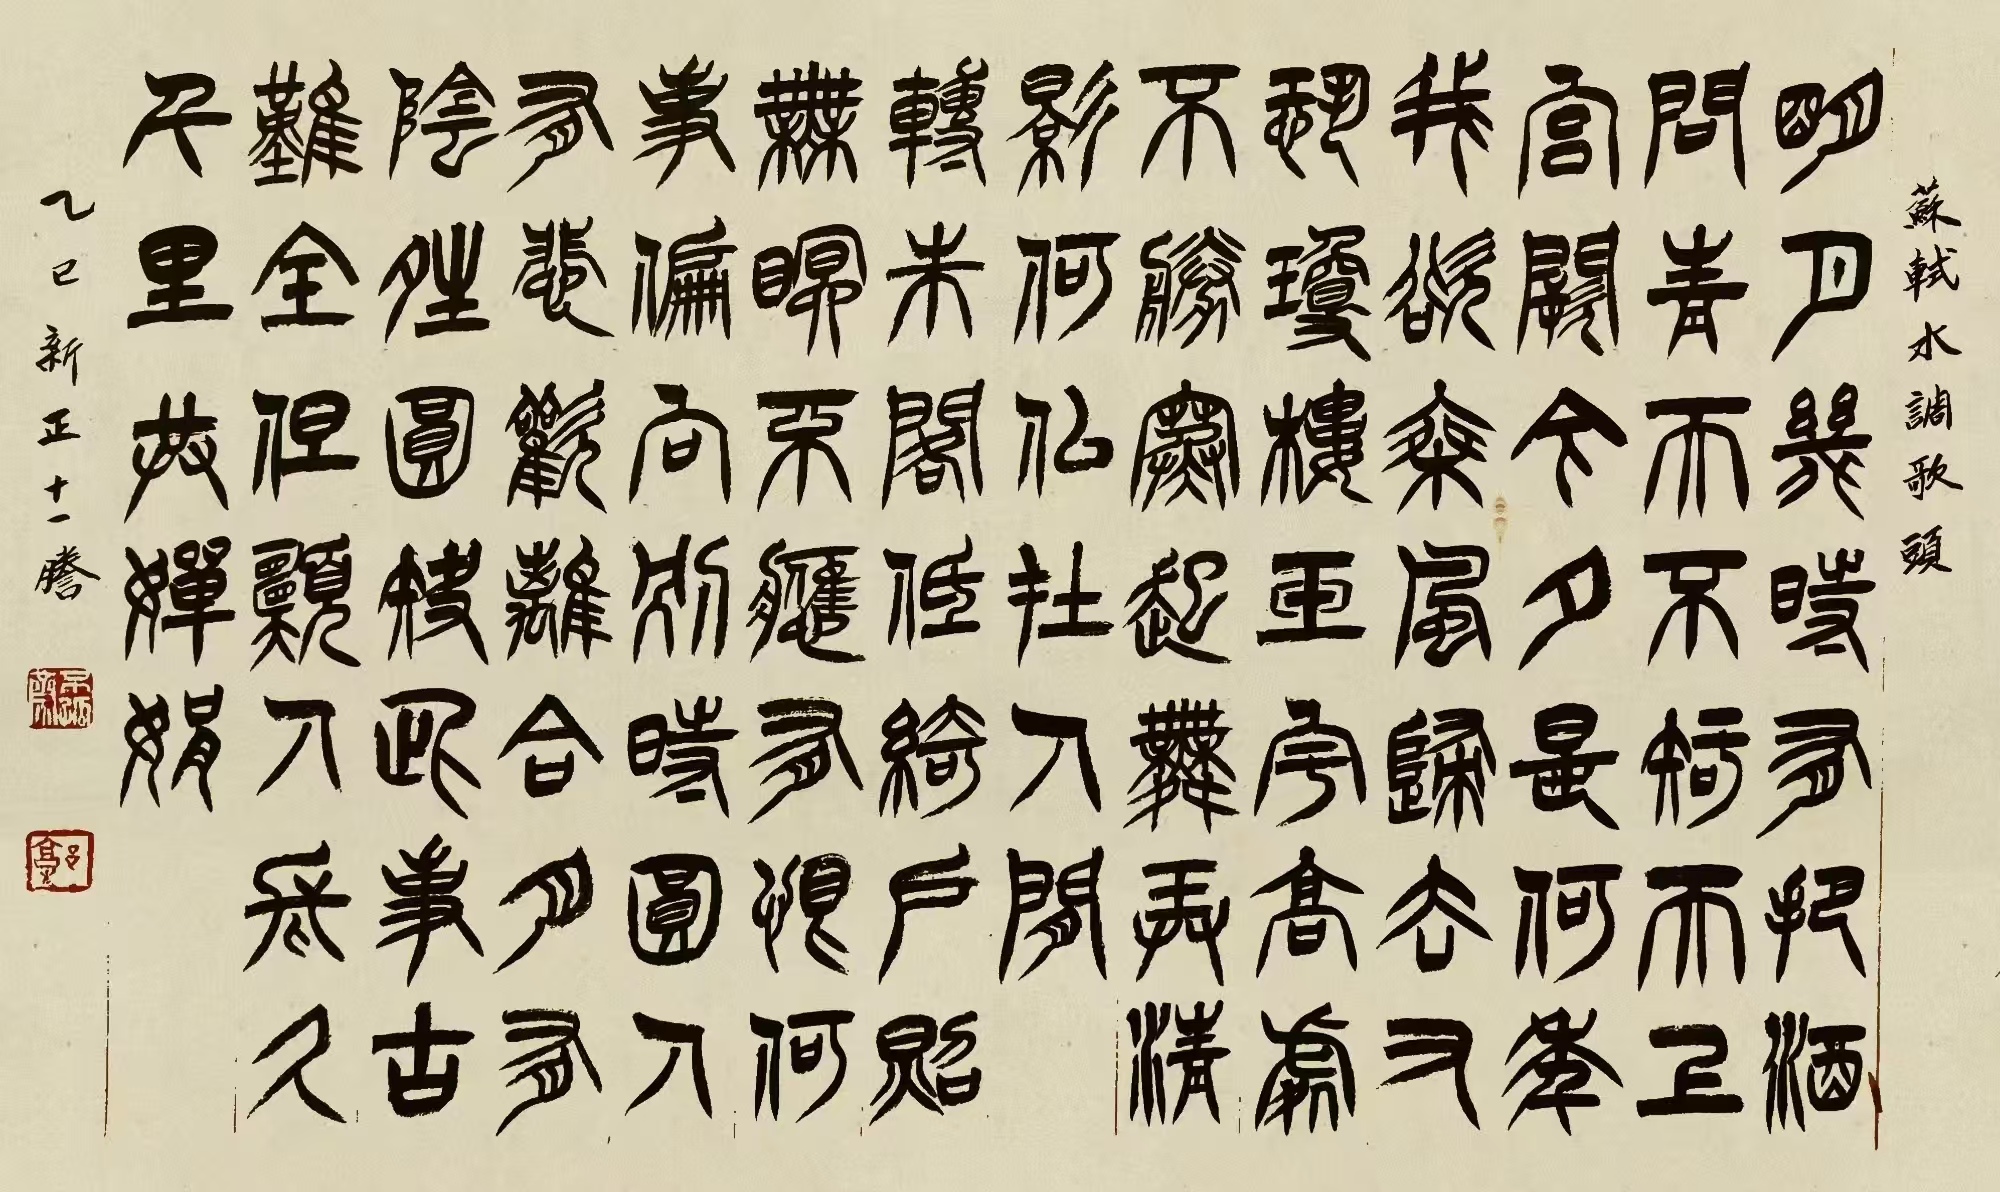 蘇軾水調歌頭
明月幾時有把酒
問青天不知天上
宮闕今夕是何年
我欲乘風歸去又
恐瓊樓玉宇高處
不勝寒起舞弄清
影何似在人間
轉朱閣低綺戶照
無眠不應有恨何
事偏向別時圓人
有悲歡離合月有
陰晴圓缺此事古
難全但願人長久
千里共嬋娟
乙巳新正十一謄